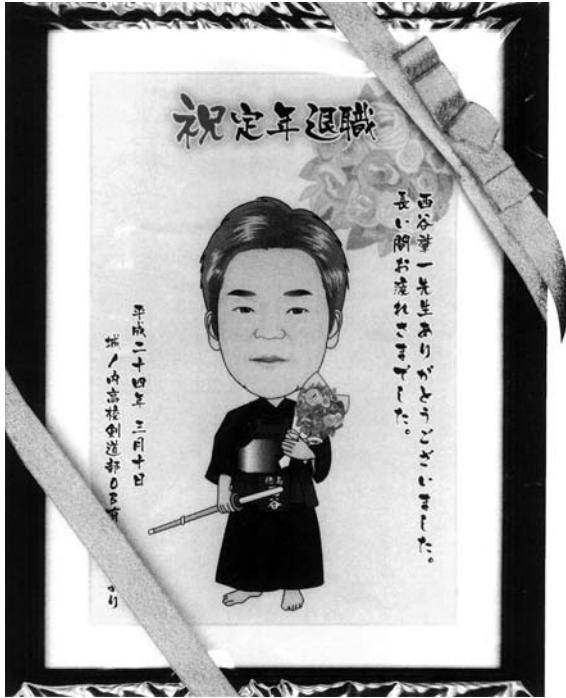 祝定年退職
西谷肇一先生ありがとうございました。
長い間お疲れさまでした。
平成二十四年三月十日
城ノ内高校剣道部OB有
より
谷